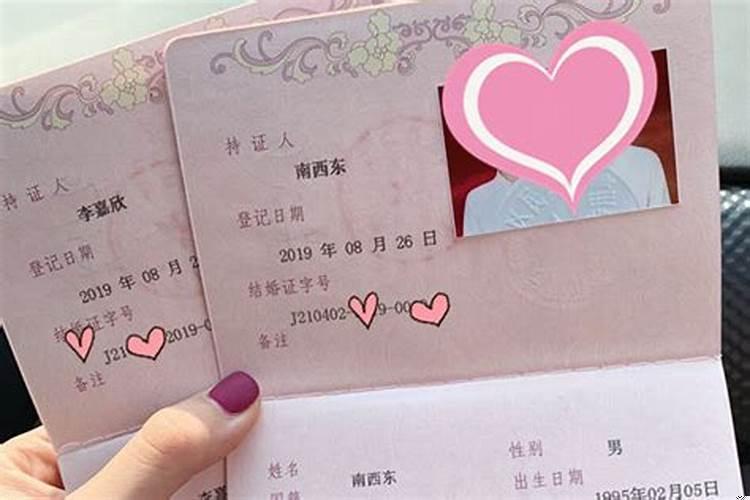 持证人
李嘉欣
登记日期
2019 年 08 月 2
结婚证字号
J21
2019-0
备注
持证人
南西东
登记日期
2019 年 08 月 26 日
结婚证字号
J210402-
9-00
备注
姓名
南西东
性别
男
出生日期
1995年02月05日
姓名
李嘉